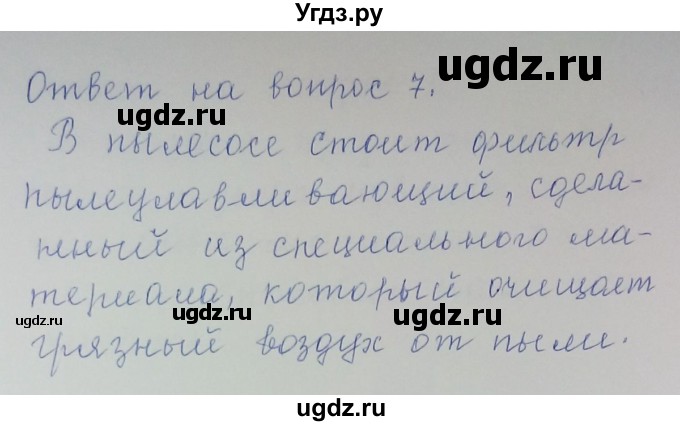 Угдз.ру
Ответ на вопрос 7.
ugdz.ru
ugdz.ru
В пылесосе стоит фильтр
пылеулавливающий, сдела-
нный из специального ма-
териала, который очищает
ugdz.ru
ugdz.ru
ugdz.ru
грязный воздух от пыли.
ugdz.ru